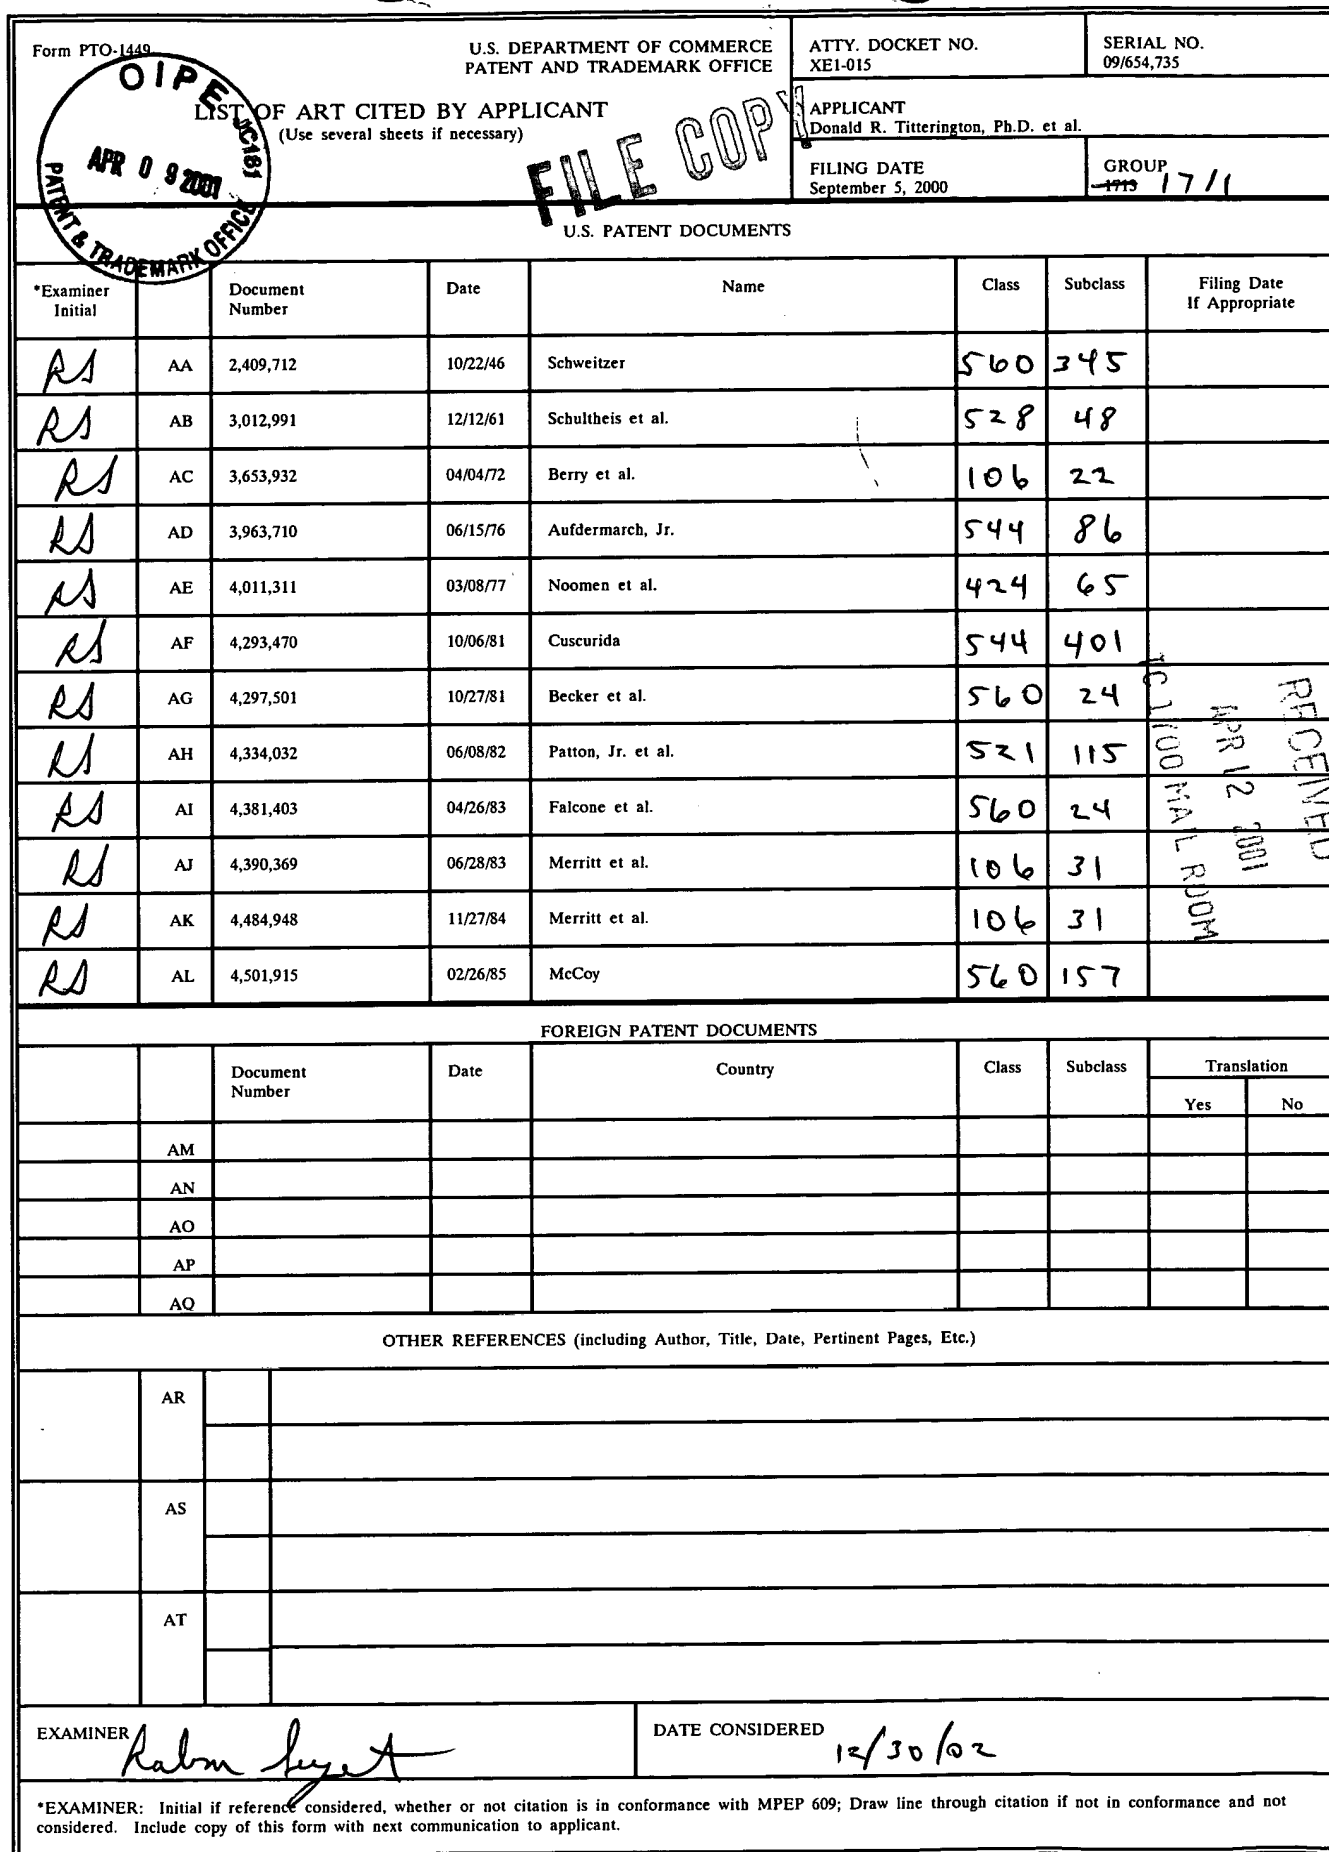 Form PTO-1449
U.S. DEPARTMENT OF COMMERCE
PATENT AND TRADEMARK OFFICE
ATTY. DOCKET NO.
XE1-015
SERIAL NO.
09/654,735
LIST OF ART CITED BY APPLICANT
(Use several sheets if necessary)
OIPE JC181
APR 0 9 2001
PATENT & TRADEMARK OFFICE
FILE COPY
APPLICANT
Donald R. Titterington, Ph.D. et al.
FILING DATE
September 5, 2000
GROUP
1713 1711
U.S. PATENT DOCUMENTS
*Examiner Initial Document Number Date Name Class Subclass Filing Date If Appropriate
RS AA 2,409,712 10/22/46 Schweitzer 560 345
RS AB 3,012,991 12/12/61 Schultheis et al. 528 48
RS AC 3,653,932 04/04/72 Berry et al. 106 22
RS AD 3,963,710 06/15/76 Aufdermarch, Jr. 544 86
RS AE 4,011,311 03/08/77 Noomen et al. 424 65
RS AF 4,293,470 10/06/81 Cuscurida 544 401
RS AG 4,297,501 10/27/81 Becker et al. 560 24
RS AH 4,334,032 06/08/82 Patton, Jr. et al. 521 115
RS AI 4,381,403 04/26/83 Falcone et al. 560 24
RS AJ 4,390,369 06/28/83 Merritt et al. 106 31
RS AK 4,484,948 11/27/84 Merritt et al. 106 31
RS AL 4,501,915 02/26/85 McCoy 560 157
RECEIVED
APR 12 2001
TC 1700 MAIL ROOM
FOREIGN PATENT DOCUMENTS
Document Number Date Country Class Subclass Translation
Yes No
AM
AN
AO
AP
AQ
OTHER REFERENCES (including Author, Title, Date, Pertinent Pages, Etc.)
AR
AS
AT
EXAMINER
DATE CONSIDERED 12/30/02
*EXAMINER: Initial if reference considered, whether or not citation is in conformance with MPEP 609; Draw line through citation if not in conformance and not
considered. Include copy of this form with next communication to applicant.